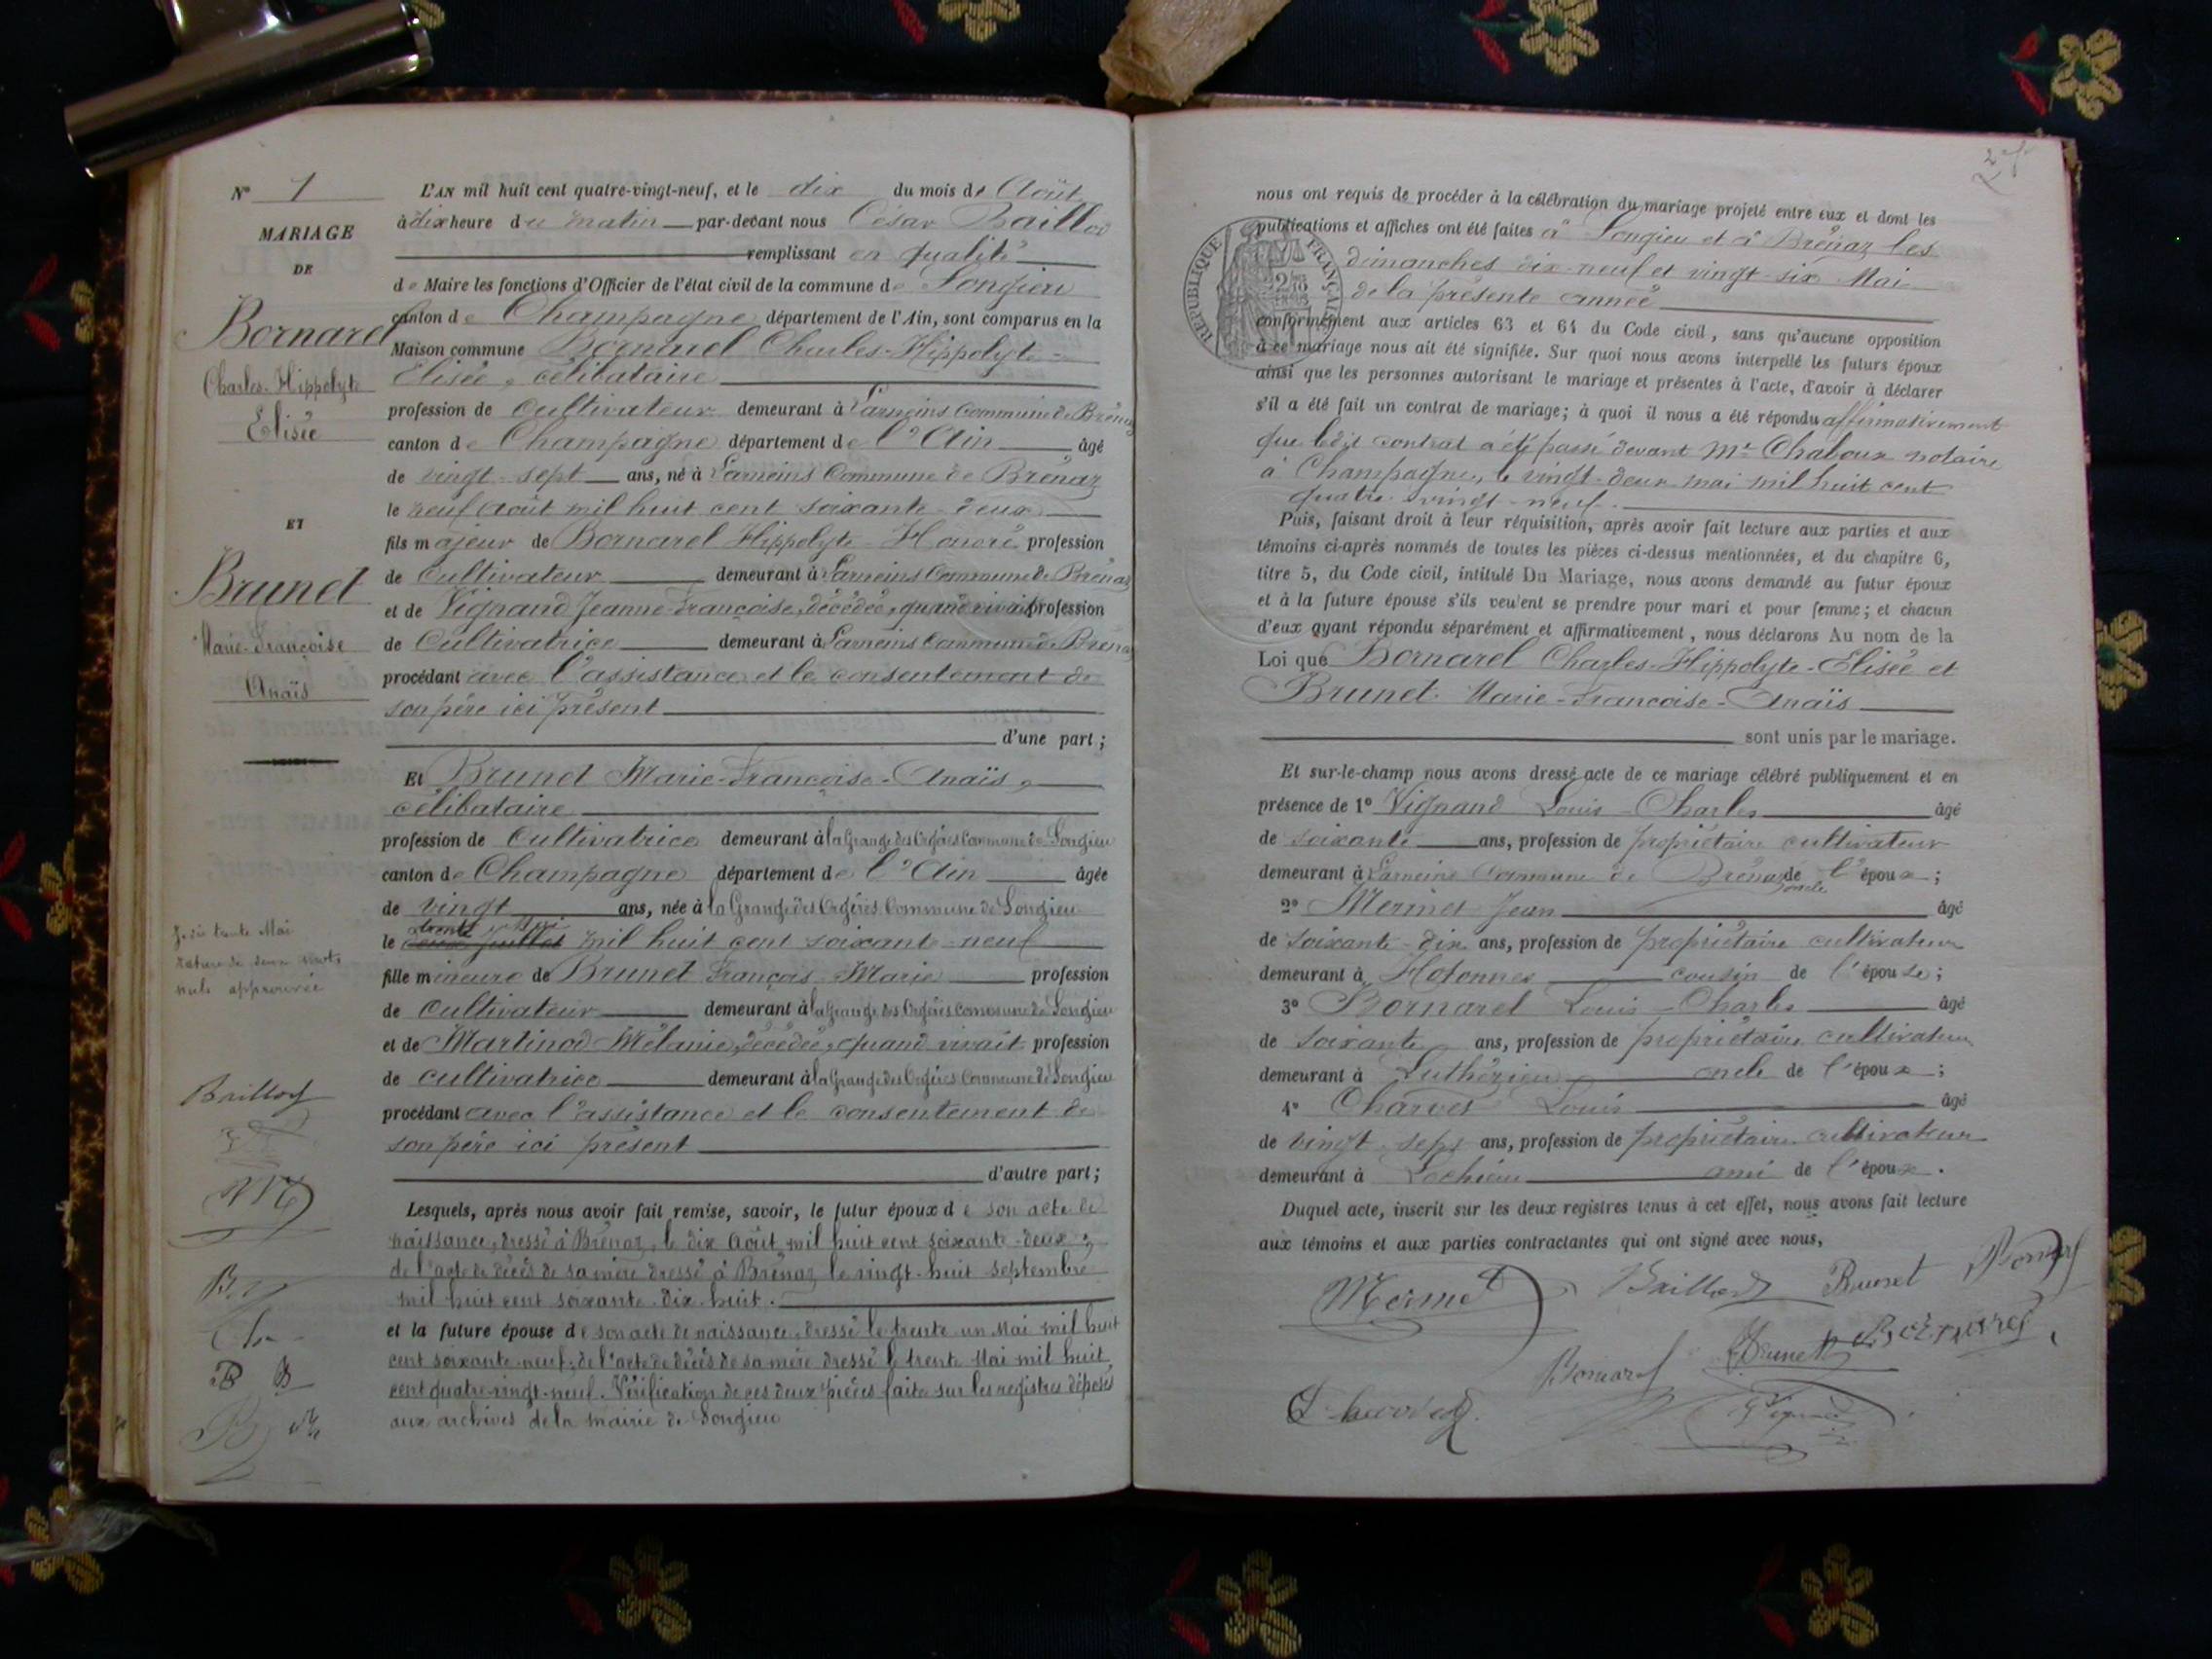 N° 1
MARIAGE
DE
Bornarel
Charles-Hippolyte
Elisée
ET
Brunet
Marie-Françoise
Anaïs
trente Mai
rature de deux mots
nuls approuvée
Baillod
L'AN mil huit cent quatre-vingt-neuf, et le dix du mois de Août
à dix heure du matin par-devant nous César Baillod
remplissant en qualité
de Maire les fonctions d'Officier de l'état civil de la commune de Songieu
canton de Champagne département de l'Ain, sont comparus en la
Maison commune Bornarel Charles-Hippolyte-
Elisée, célibataire
profession de cultivateur demeurant à Sarneins Commune de Brénaz
canton de Champagne département de l'Ain âgé
de vingt-sept ans, né à Sarneins Commune de Brénaz
le neuf Août mil huit cent soixante-deux
fils majeur de Bornarel Hippolyte-Honoré profession
de cultivateur demeurant à Sarneins Commune de Brénaz
et de Vignand Jeanne-Françoise, décédée, quand vivait profession
de cultivatrice demeurant à Sarneins Commune de Brénaz
procédant avec l'assistance et le consentement de
son père ici présent
d'une part;
Et Brunet Marie-Françoise-Anaïs,
célibataire
profession de cultivatrice demeurant à la Grange des Orgères Commune de Songieu
canton de Champagne département de l'Ain âgée
de vingt ans, née à la Grange des Orgères Commune de Songieu
trente Mai
le deux Juillet mil huit cent soixante-neuf
fille mineure de Brunet François-Marie profession
de cultivateur demeurant à la Grange des Orgères commune de Songieu
et de Martinod Mélanie, décédée, quand vivait profession
de cultivatrice demeurant à la Grange des Orgères Commune de Songieu
procédant avec l'assistance et le consentement de
son père ici présent
d'autre part;
Lesquels, après nous avoir fait remise, savoir, le futur époux de son acte de
naissance, dressé à Brénaz, le dix Août mil huit cent soixante-deux;
de l'acte de décès de sa mère dressé à Brénaz le vingt-huit septembre
mil huit cent soixante-dix-huit.
et la future épouse de son acte de naissance, dressé le trente un Mai mil huit
cent soixante-neuf; de l'acte de décès de sa mère dressé le trente Mai mil huit
cent quatre-vingt-neuf. Vérification de ces deux pièces faite sur les registres déposés
aux archives de la mairie de Songieu
nous ont requis de procéder à la célébration du mariage projeté entre eux et dont les
publications et affiches ont été faites à Songieu et à Brénaz les
dimanches dix-neuf et vingt-six Mai
de la présente année
RÉPUBLIQUE FRANÇAISE
conformément aux articles 63 et 64 du Code civil, sans qu'aucune opposition
à ce mariage nous ait été signifiée. Sur quoi nous avons interpellé les futurs époux
ainsi que les personnes autorisant le mariage et présentes à l'acte, d'avoir à déclarer
s'il a été fait un contrat de mariage; à quoi il nous a été répondu affirmativement
que ledit contrat a été passé devant Me Chaboux notaire
à Champagne, le vingt-deux mai mil huit cent
quatre-vingt-neuf.
Puis, faisant droit à leur réquisition, après avoir fait lecture aux parties et aux
témoins ci-après nommés de toutes les pièces ci-dessus mentionnées, et du chapitre 6,
titre 5, du Code civil, intitulé Du Mariage, nous avons demandé au futur époux
et à la future épouse s'ils veulent se prendre pour mari et pour femme; et chacun
d'eux ayant répondu séparément et affirmativement, nous déclarons Au nom de la
Loi que Bornarel Charles-Hippolyte-Elisée et
Brunet Marie-Françoise-Anaïs
sont unis par le mariage.
Et sur-le-champ nous avons dressé acte de ce mariage célébré publiquement et en
présence de 1° Vignand Louis-Charles âgé
de soixante ans, profession de propriétaire cultivateur
demeurant à Sarneins Commune de Brénaz oncle de l'époux;
2° Mermet Jean âgé
de soixante-dix ans, profession de propriétaire cultivateur
demeurant à Hotonnes cousin de l'épouse;
3° Bornarel Louis-Charles âgé
de soixante ans, profession de propriétaire cultivateur
demeurant à Luthézieu oncle de l'époux;
4° Charvet Louis âgé
de vingt-sept ans, profession de propriétaire cultivateur
demeurant à Lochieu ami de l'époux.
Duquel acte, inscrit sur les deux registres tenus à cet effet, nous avons fait lecture
aux témoins et aux parties contractantes qui ont signé avec nous,
Mermet Baillod Brunet
Bornarel Brunet